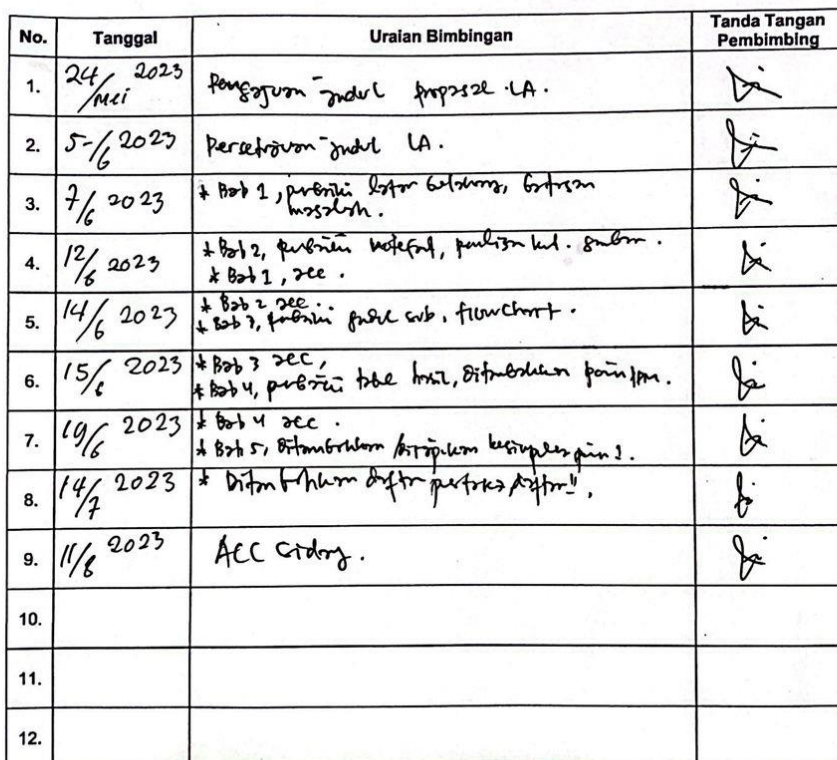 No. Tanggal Uraian Bimbingan Tanda Tangan
Pembimbing
1. 24/Mei 2023 Pengajuan judul proposal LA.
2. 5-/6 2023 Persetujuan judul LA.
3. 7/6 2023 * Bab 1, perbaiki latar belakang, batasan
masalah.
4. 12/6 2023 * Bab 2, perbaiki
* Bab 1, acc.
5. 14/6 2023 * Bab 2 acc.
* Bab 3, perbaiki sub, flowchart.
6. 15/6 2023 * Bab 3 acc,
* Bab 4, perbaiki hasil, ditambahkan
7. 19/6 2023 * Bab 4 acc.
* Bab 5, ditambahkan
8. 14/7 2023 * Ditambahkan daftar pustaka, daftar".
9. 11/8 2023 ACC sidang.
10.
11.
12.